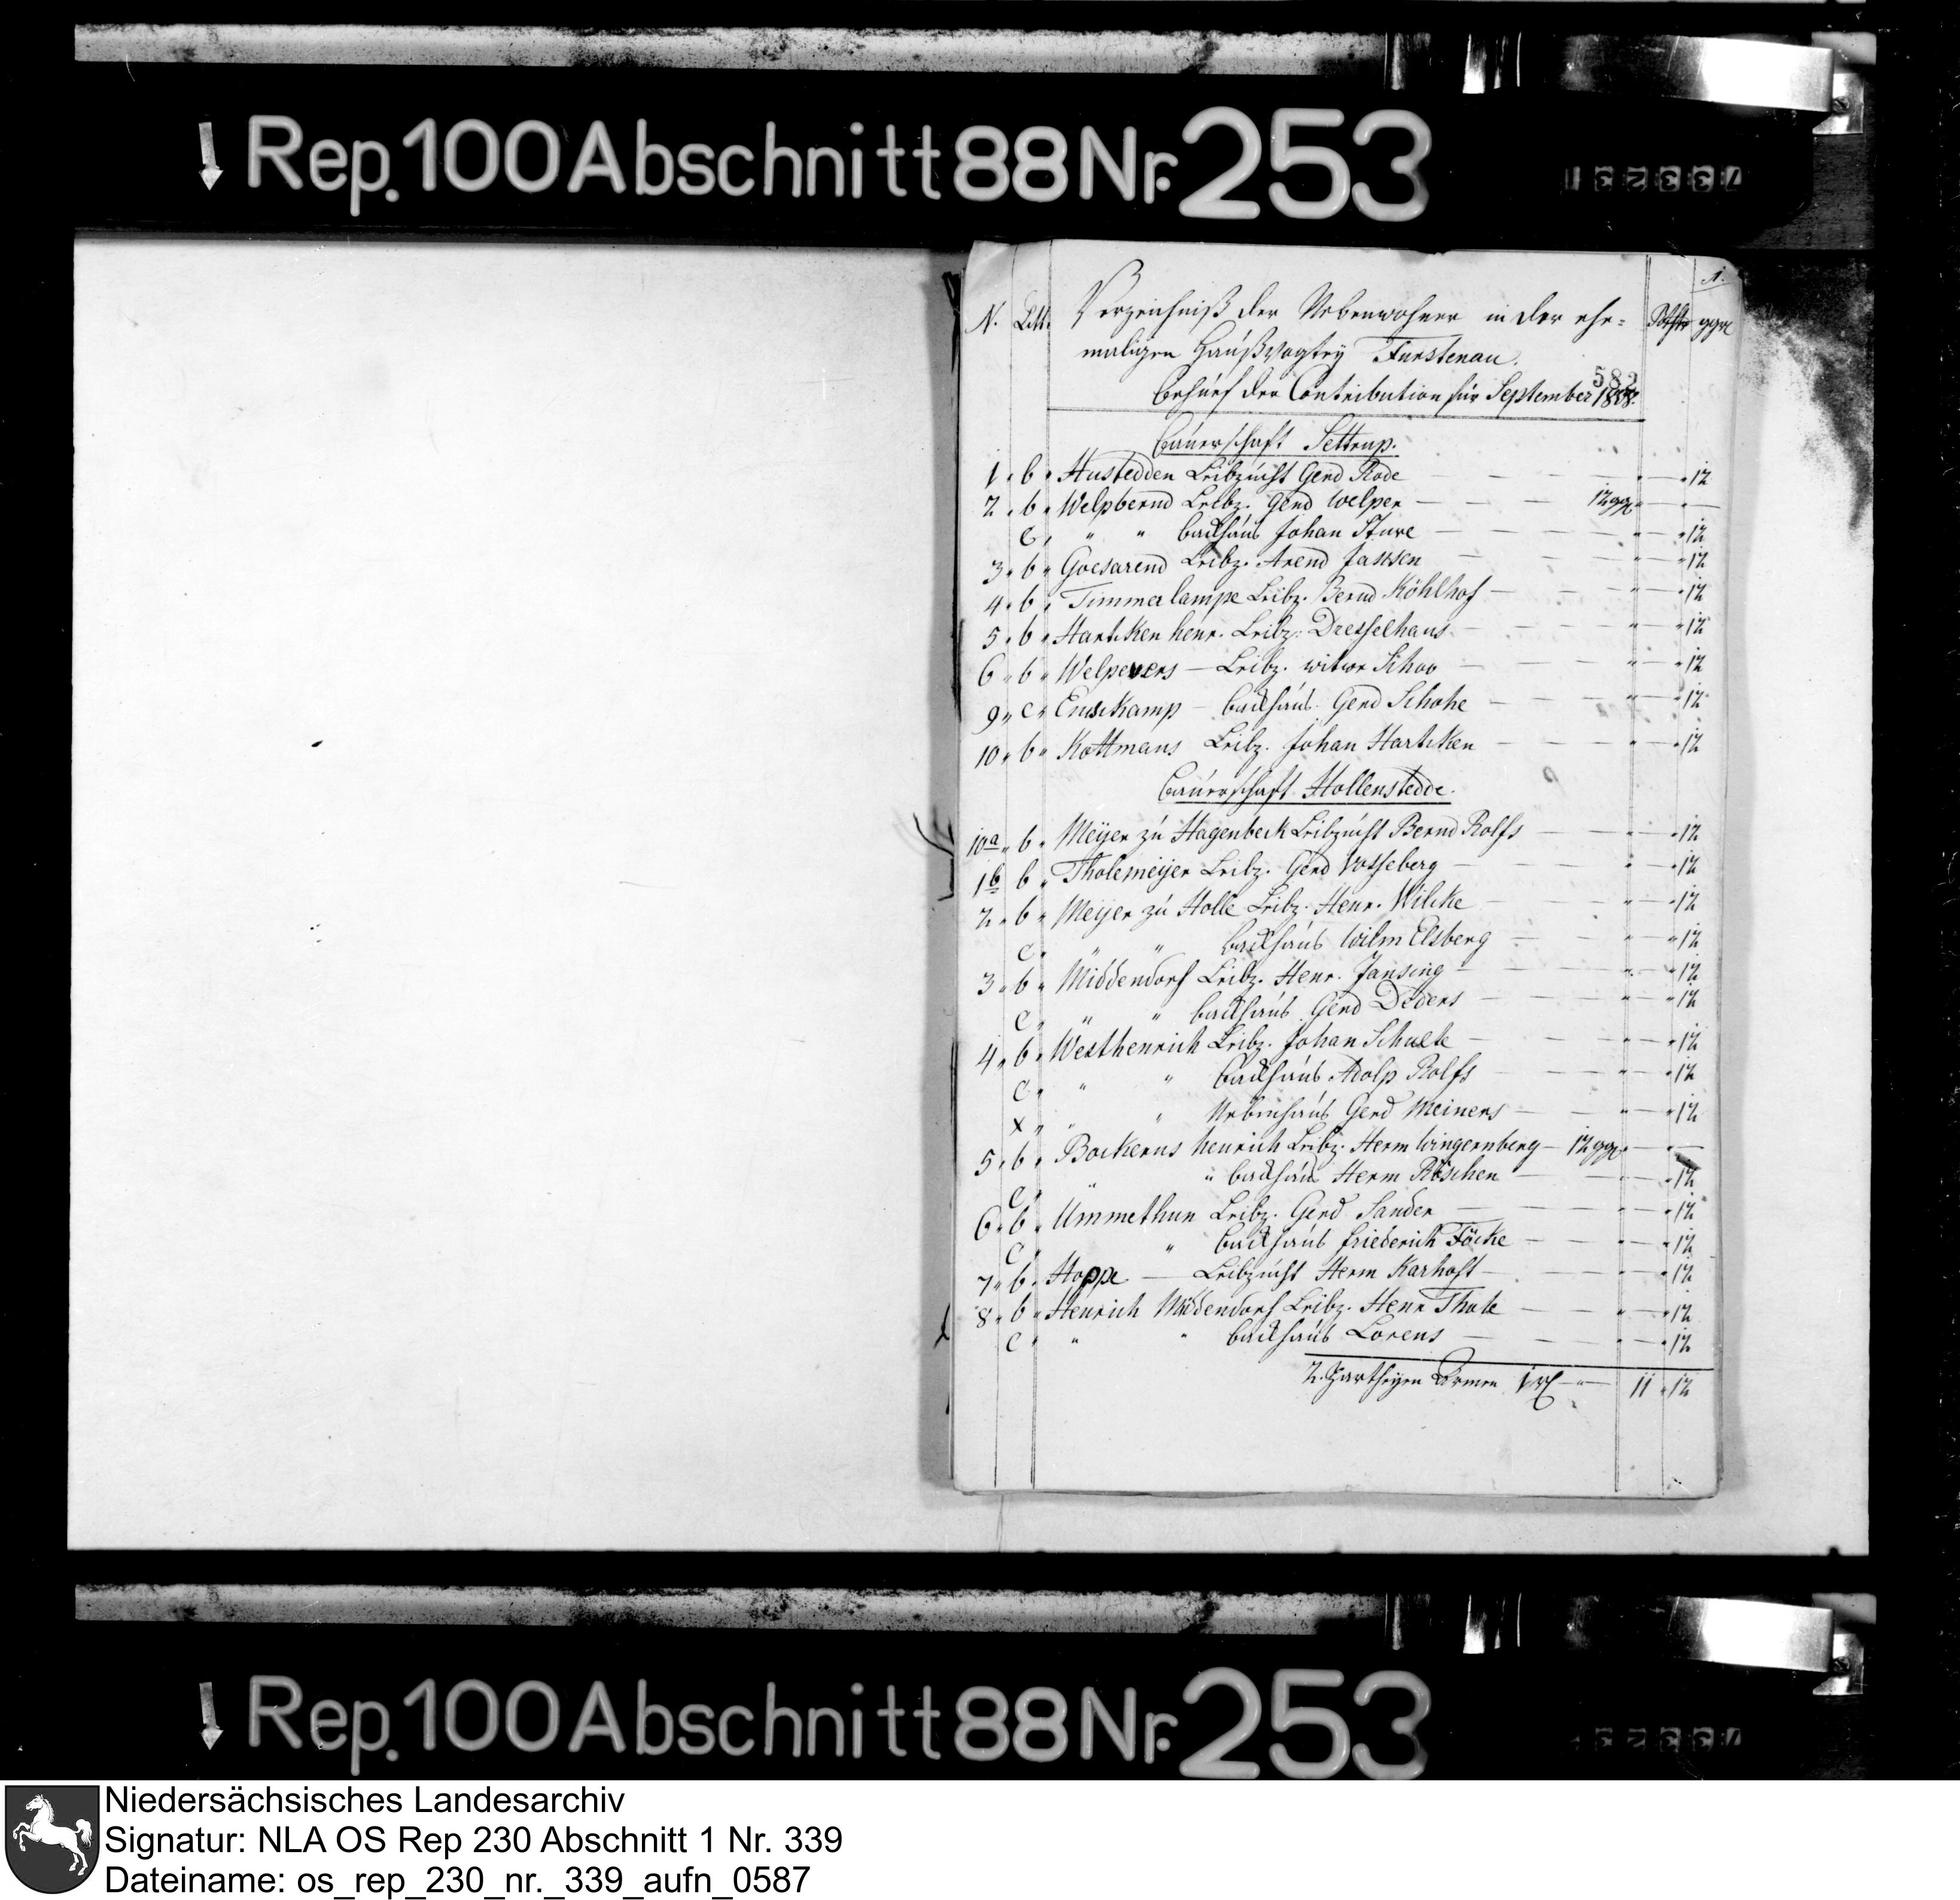 Rep. 100 Abschnitt 88 Nr. 253
1.
N. Litt. Verzeichniß der Nebenwohner in der ehe= Rthlr ggr
maligen Haußvogtey Furstenau
582
behúef der Contribution für September 1808.
Baúerschaft Settrup.
1 " b " Hustedden Leibzúcht Gerd Rode — — — " — " 12
2 " b " Welpbernd Leibz. Gerd Welper — — — 12 ggr " — " —
c " " " backhaús Johan Sture — — — " — " 12
3 " b " Goesarend Leibz. Arend Jansen — — — " — " 12
4 " b " Timmerlampe Leibz. Bernd Köhlhof — — — " — " 12
5 " b " Hartcken henr. Leibz. Dresselhaus — — — " — " 12
6 " b " Welpevers — Leibz. witwe Schoo — — — " — " 12
9 " c " Enseckamp — backhaús Gerd Schohe — — — " — " 12
10 " b " Kottmans Leibz. Johan Hartcken — — — " — " 12
Baúerschaft Hollenstedde.
10a " b " Meÿer zú Hagenbeck Leibzúcht Bernd Rolfs — — " — " 12
1b b " Tholemeÿer Leibz. Gerd Vosseberg — — — " — " 12
2 " b " Meÿer zú Holle Leibz. Henr. Wilcke — — — " — " 12
c " " " backhaús Wilm Elsberg — — — " — " 12
3 " b " Middendorf Leibz. Henr. Jansing — — — " — " 12
c " " " backhaús Gerd Deders — — — " — " 12
4 " b " Westhenrich Leibz. Johan Schulte — — — " — " 12
c " " " backhaús Adolp Rolfs — — — " — " 12
x " " " Nebenhaús Gerd Meiners — — — " — " 12
5 " b " Bockerns henrich Leibz. Herm Wingernberg — 12 ggr " — " —
c " " " backhaús Herm Röschen — — — " 12
6 " b " Ummethun Leibz. Gerd Sander — — — " 12
c " " backhaús friederich Föcke — — — " — " 12
7 " b " Hoppe — Leibzúcht Herm Karhoft — — — " — " 12
8 " b " Henrich Middendorf Leibz. Henr Thole — — — " — " 12
c " " " backhaús Lorens — — — " — " 12
2. Partheyen Armen 1 rt — " — 11 " 12
Rep. 100 Abschnitt 88 Nr. 253
Niedersächsisches Landesarchiv
Signatur: NLA OS Rep 230 Abschnitt 1 Nr. 339
Dateiname: os_rep_230_nr._339_aufn_0587